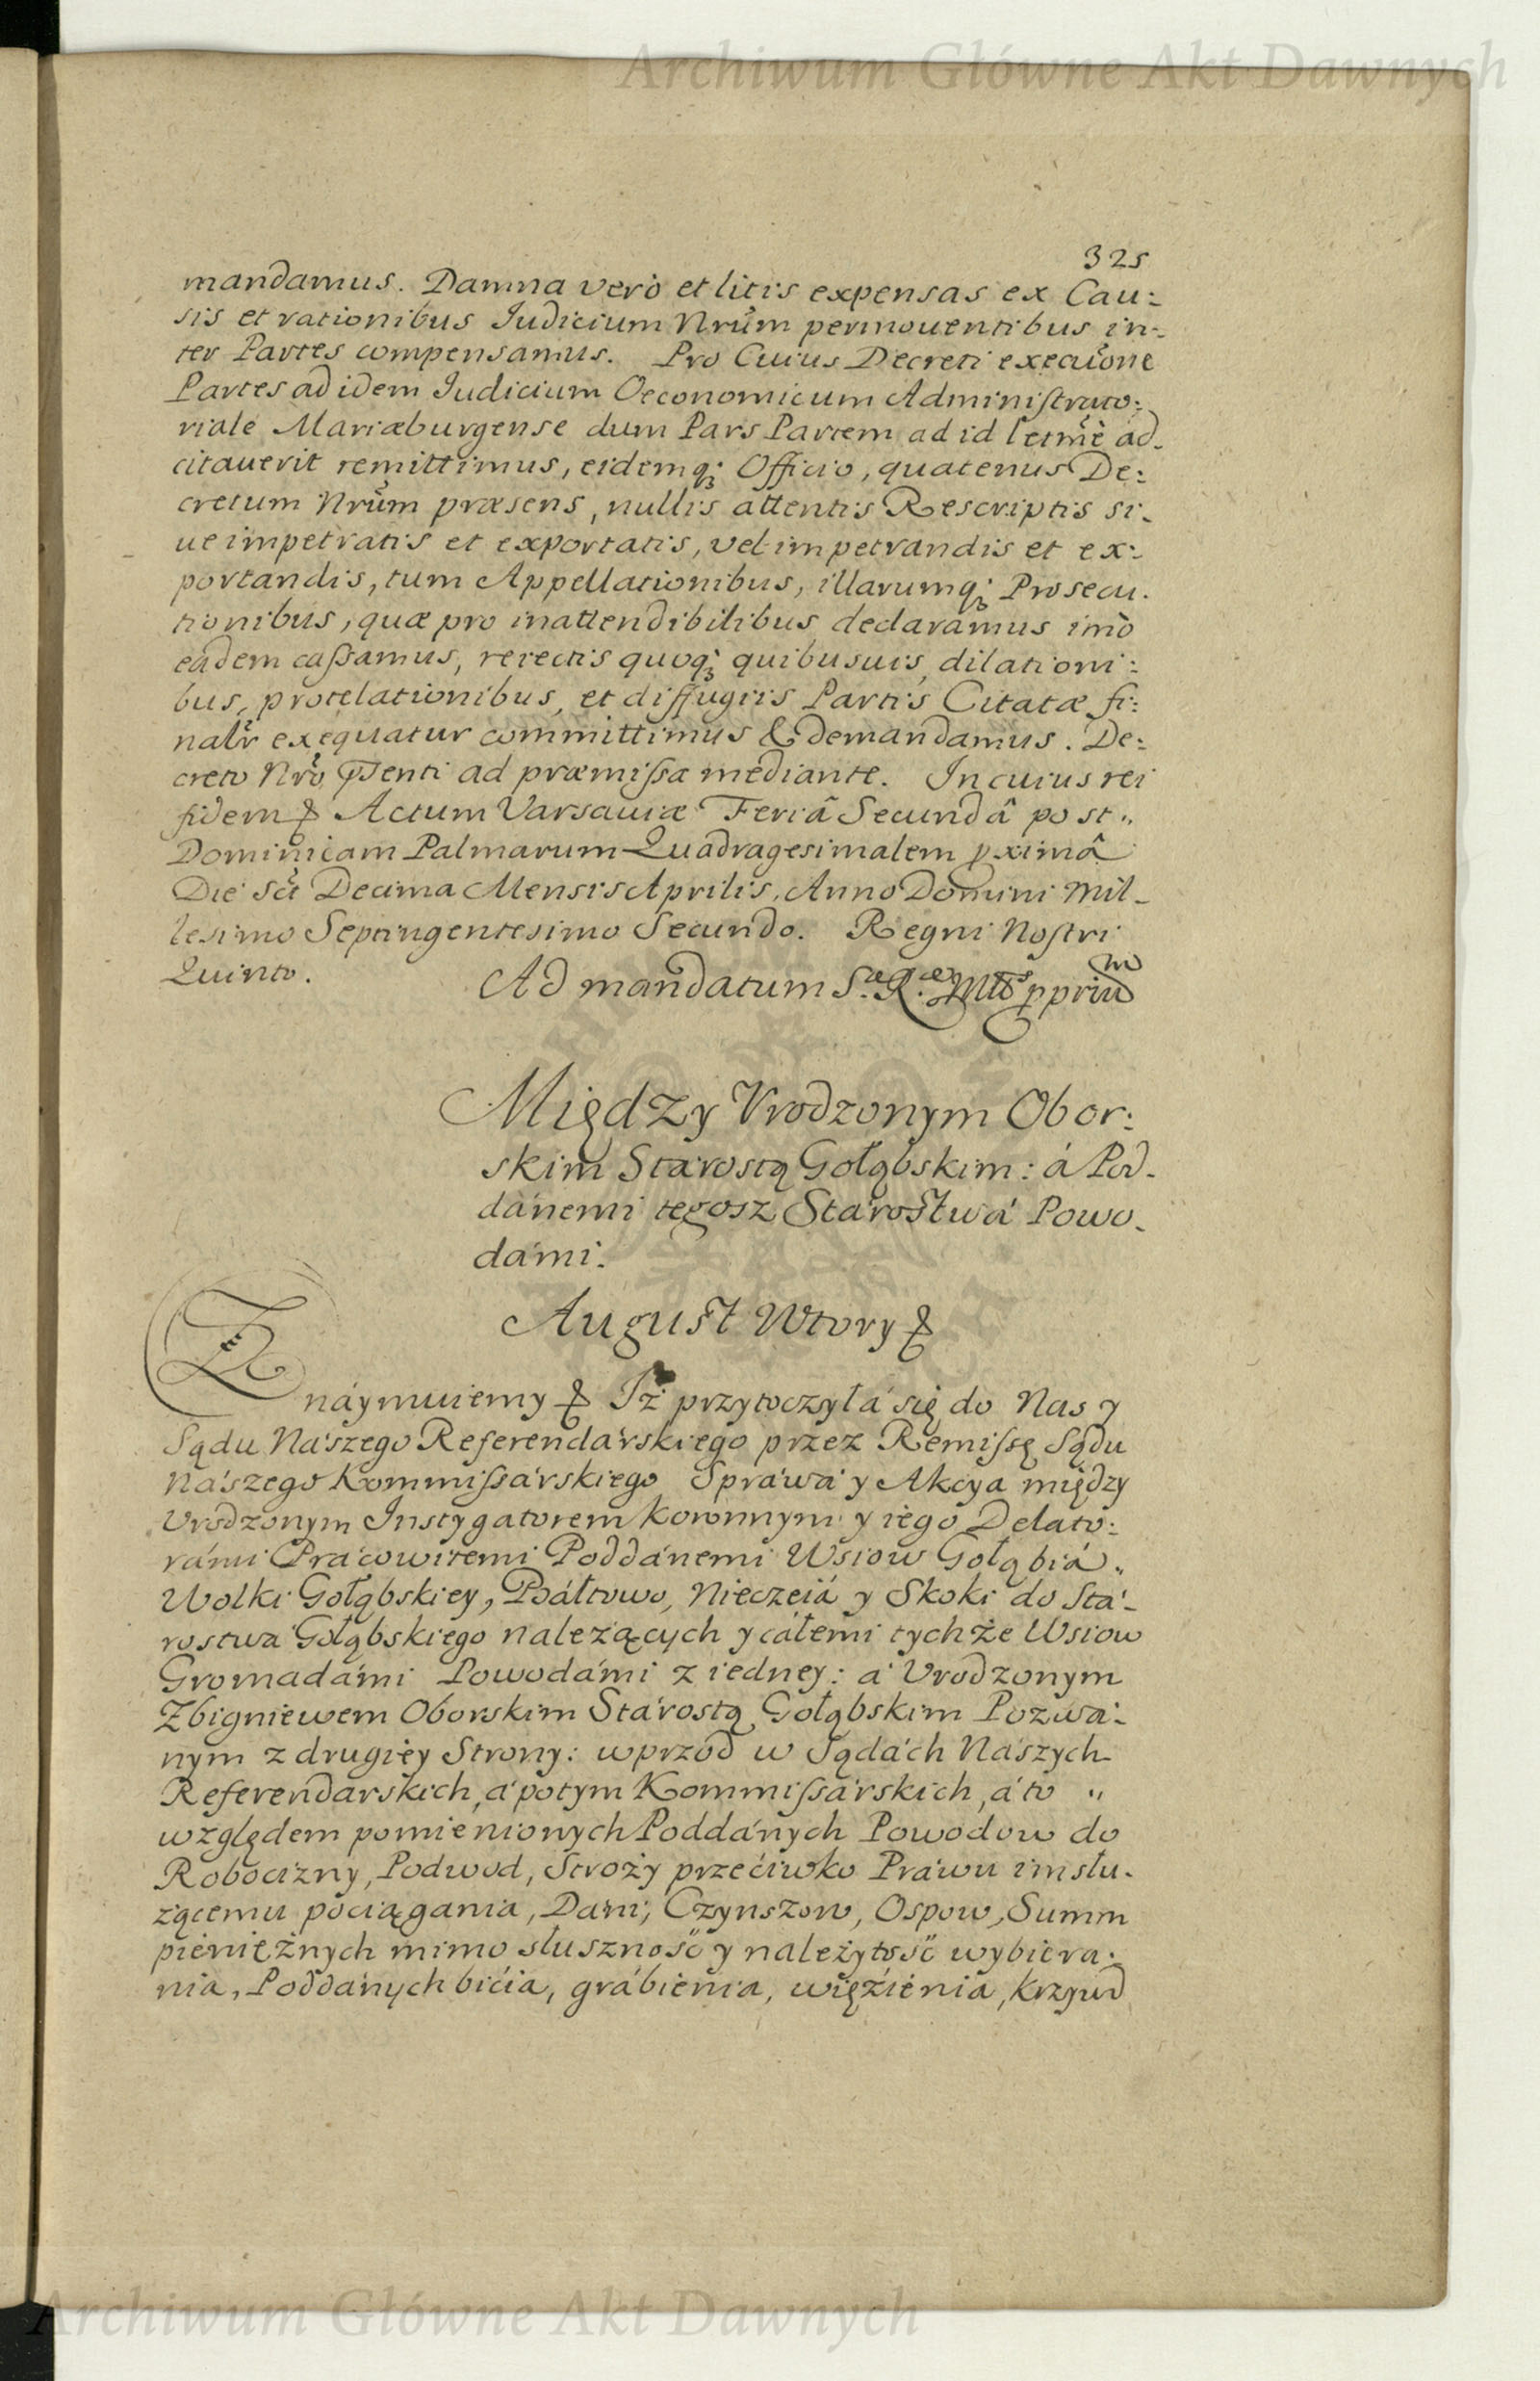 Archiwum Główne Akt Dawnych
325
mandamus. Damna verò et litis expensas ex Cau:
sis et rationibus Iudicium Nrũm permoventibus in:
ter Partes compensamus. Pro Cuius Decreti execuõne
Partes ad idem Iudicium Oeconomicum Administrato:
riale Mariæburgense dum Pars Partem ad id letmè ad-
citauerit remittimus, eidemq; Officio, quatenus De:
cretum Nrũm præsens, nullis attentis Rescriptis si-
ue impetratis et exportatis, vel impetrandis et ex:
portandis, tum Appellationibus, illarumq; Prosecu-
tionibus, quæ pro inattendibilibus declaramus imò
eadem cassamus, reiectis quoq; quibusuis dilationi:
bus, protelationibus, et diffugiis Partis Citatæ fi:
nalr exequatur committimus & demandamus. De:
creto Nro pñsenti ad præmissa mediante. In cuius rei
fidem & Actum Varsaviæ Feriâ Secundâ post "
Dominicam Palmarum Quadragesimalem pximâ
Die Sci Decima Mensis Aprilis, Anno Domini Mil-
lesimo Septingentesimo Secundo. Regni Nostri
Quinto. Ad mandatum S.æ R.æ Mttis ppriũm
Między Vrodzonym Obor:
skim Stárostą Gołąbskim: á Pod-
dánemi tegosz Stárostwá Powo-
dámi.
August Wtory &
Znáymuiemy & Iż przytoczyłá się do Nas y
Sądu Nászego Referendárskiego przez Remissę Sądu
Nászego Kommissárskiego Spráwá y Akcya między
Vrodzonym Instygatorem Koronnym y iego Delato:
rámi Prácowitemi Poddánemi Wsiow Gołąbiá "
Wolki Gołąbskiey, Báłtowo, Nieczeiá y Skoki do Stá-
rostwa Gołąbskiego nalezących y cáłemi tychże Wsiow
Gromadámi Powodámi z iedney: á Vrodzonym
Zbigniewem Oborskim Stárostą Gołąbskim Pozwá:
nym z drugiéy Strony: wprzod w Sądách Nászych
Referendarskich, á potym Kommissárskich, á to "
względem pomienionych Poddánych Powodow do
Robocizny, Podwod, Stroży przećiwko Práwu im słu-
zącemu pociągania, Dáni, Czynszow, Ospow, Summ
pieniężnych mimo słuszność y należytość wybiera:
nia, Poddánych bićia, grábienia, więźienia, krzywd
Archiwum Główne Akt Dawnych